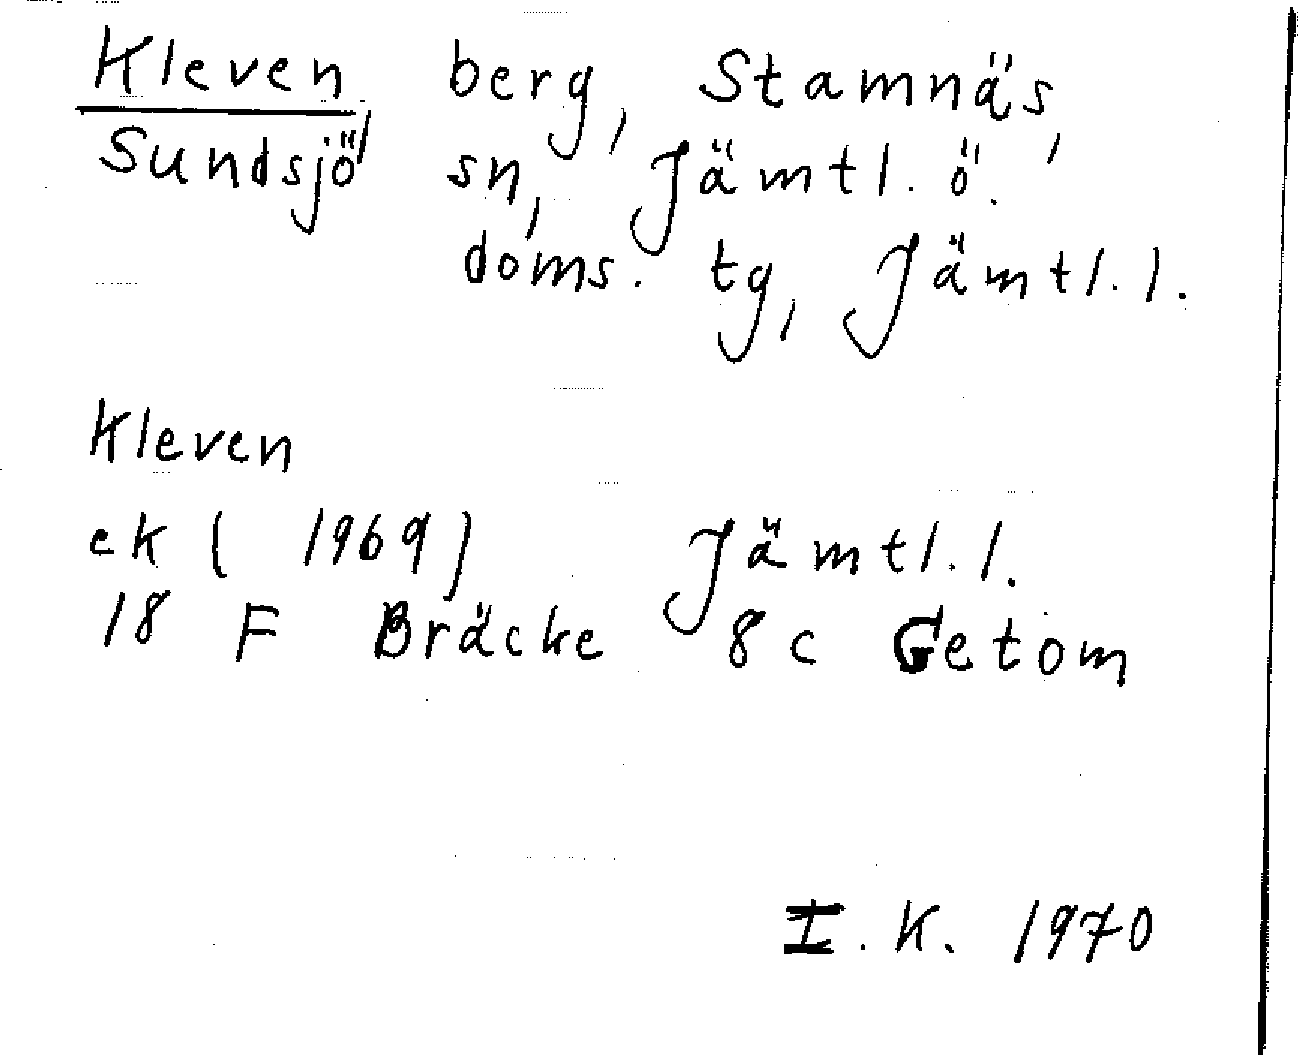 Kleven, berg, Stamnäs,
Sundsjö sn, Jämtl. ö.
doms. tg, Jämtl. l.
Kleven
ek (1969) Jämtl. l.
18 F Bräcke 8 c Getom
I. K. 1970